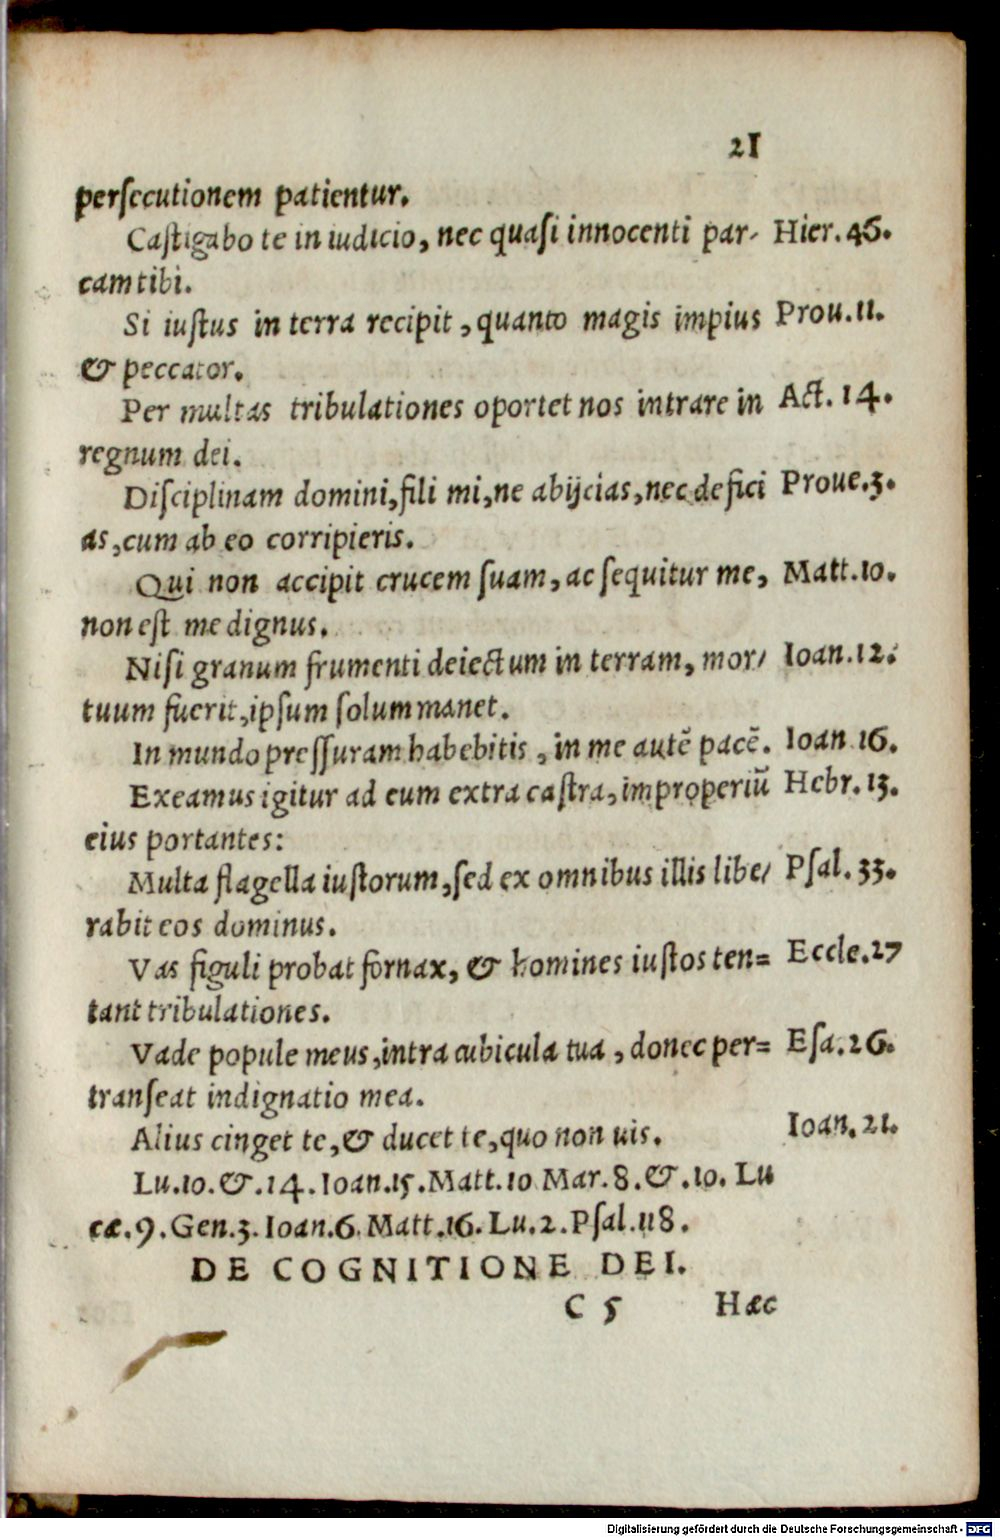 21
persecutionem patientur.
Castigabo te in iudicio, nec quasi innocenti par- Hier. 46.
cam tibi.
Si iustus in terra recipit, quanto magis impius Prou. 11.
& peccator.
Per multas tribulationes oportet nos intrare in Act. 14.
regnum dei.
Disciplinam domini, fili mi, ne abijcias, nec defici Proue. 3.
as, cum ab eo corripieris.
Qui non accipit crucem suam, ac sequitur me, Matt. 10.
non est me dignus.
Nisi granum frumenti deiectum in terram, mor/ Ioan. 12.
tuum fuerit, ipsum solum manet.
In mundo pressuram habebitis, in me autē pacē. Ioan 16.
Exeamus igitur ad eum extra castra, improperiū Hebr. 13.
eius portantes:
Multa flagella iustorum, sed ex omnibus illis libe/ Psal. 33.
rabit eos dominus.
Vas figuli probat fornax, & homines iustos ten= Eccle. 27
tant tribulationes.
Vade popule meus, intra cubicula tua, donec per= Esa. 26.
transeat indignatio mea.
Alius cinget te, & ducet te, quo non uis. Ioan. 21.
Lu. 10. &. 14. Ioan. 15. Matt. 10 Mar. 8. &. 10. Lu
cæ. 9. Gen. 3. Ioan. 6. Matt. 16. Lu. 2. Psal. 118.
DE COGNITIONE DEI.
C 5 Hæc
Digitalisierung gefördert durch die Deutsche Forschungsgemeinschaft - DFG